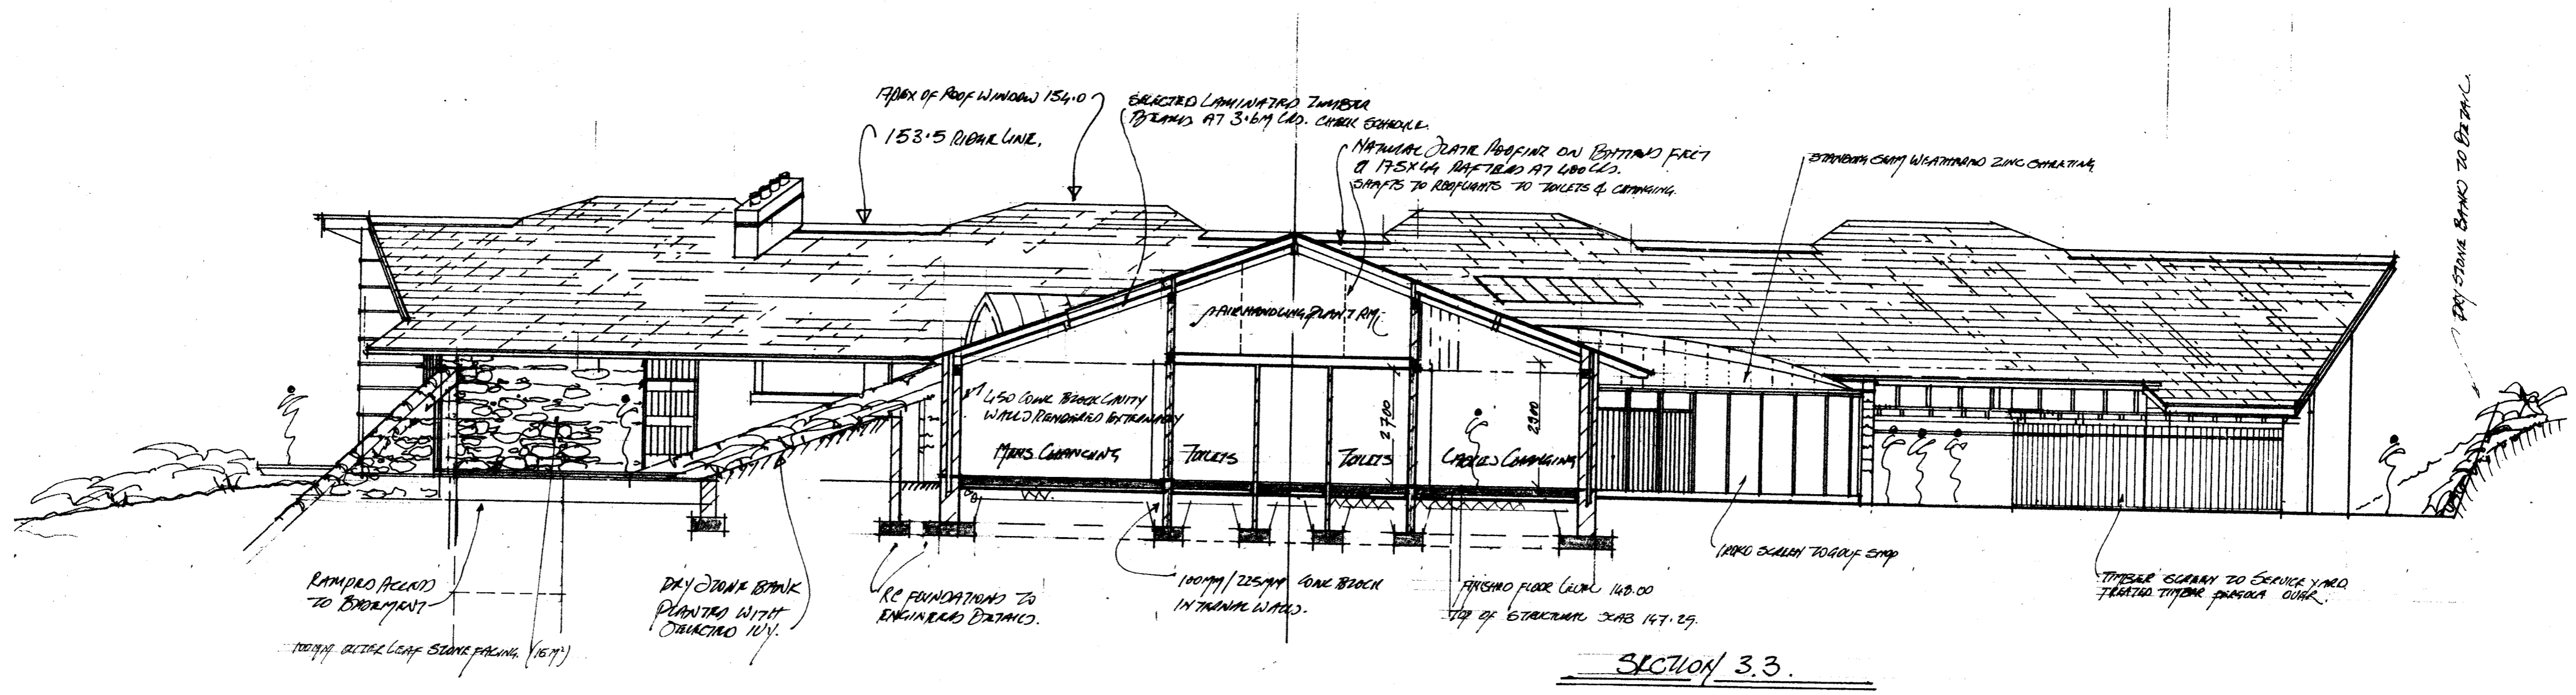 APEX OF ROOF WINDOW 154.0
153.5 RIDGE LINE.
SELECTED LAMINATED TIMBER
BEAMS AT 3.6M CRS. CHECK SCHEDULE.
NATURAL SLATE ROOFING ON BATTENS FELT
& 175X44 RAFTERS AT 400 CRS.
SHAFTS TO ROOFLIGHTS TO TOILETS & CHANGING.
STANDING SEAM WEATHERED ZINC SHEETING
DRY STONE BANK TO DETAIL.
AIR HANDLING PLANT RM.
450 CONC BLOCK CAVITY
WALLS RENDERED EXTERNALLY
2700
2900
MENS CHANGING
TOILETS
TOILETS
LADIES CHANGING
RAMPED ACCESS
TO BASEMENT
100MM OUTER LEAF STONE FACING. (15M²)
DRY STONE BANK
PLANTED WITH
SELECTED IVY.
RC FOUNDATIONS TO
ENGINEERS DETAILS.
100MM/225MM CONC BLOCK
INTERNAL WALLS.
FINISHED FLOOR LEVEL 148.00
TOP OF STRUCTURAL SLAB 147.29.
IROKO SCREEN TO GOLF SHOP
TIMBER SCREEN TO SERVICE YARD
TREATED TIMBER PERGOLA OVER.
SECTION 3.3.